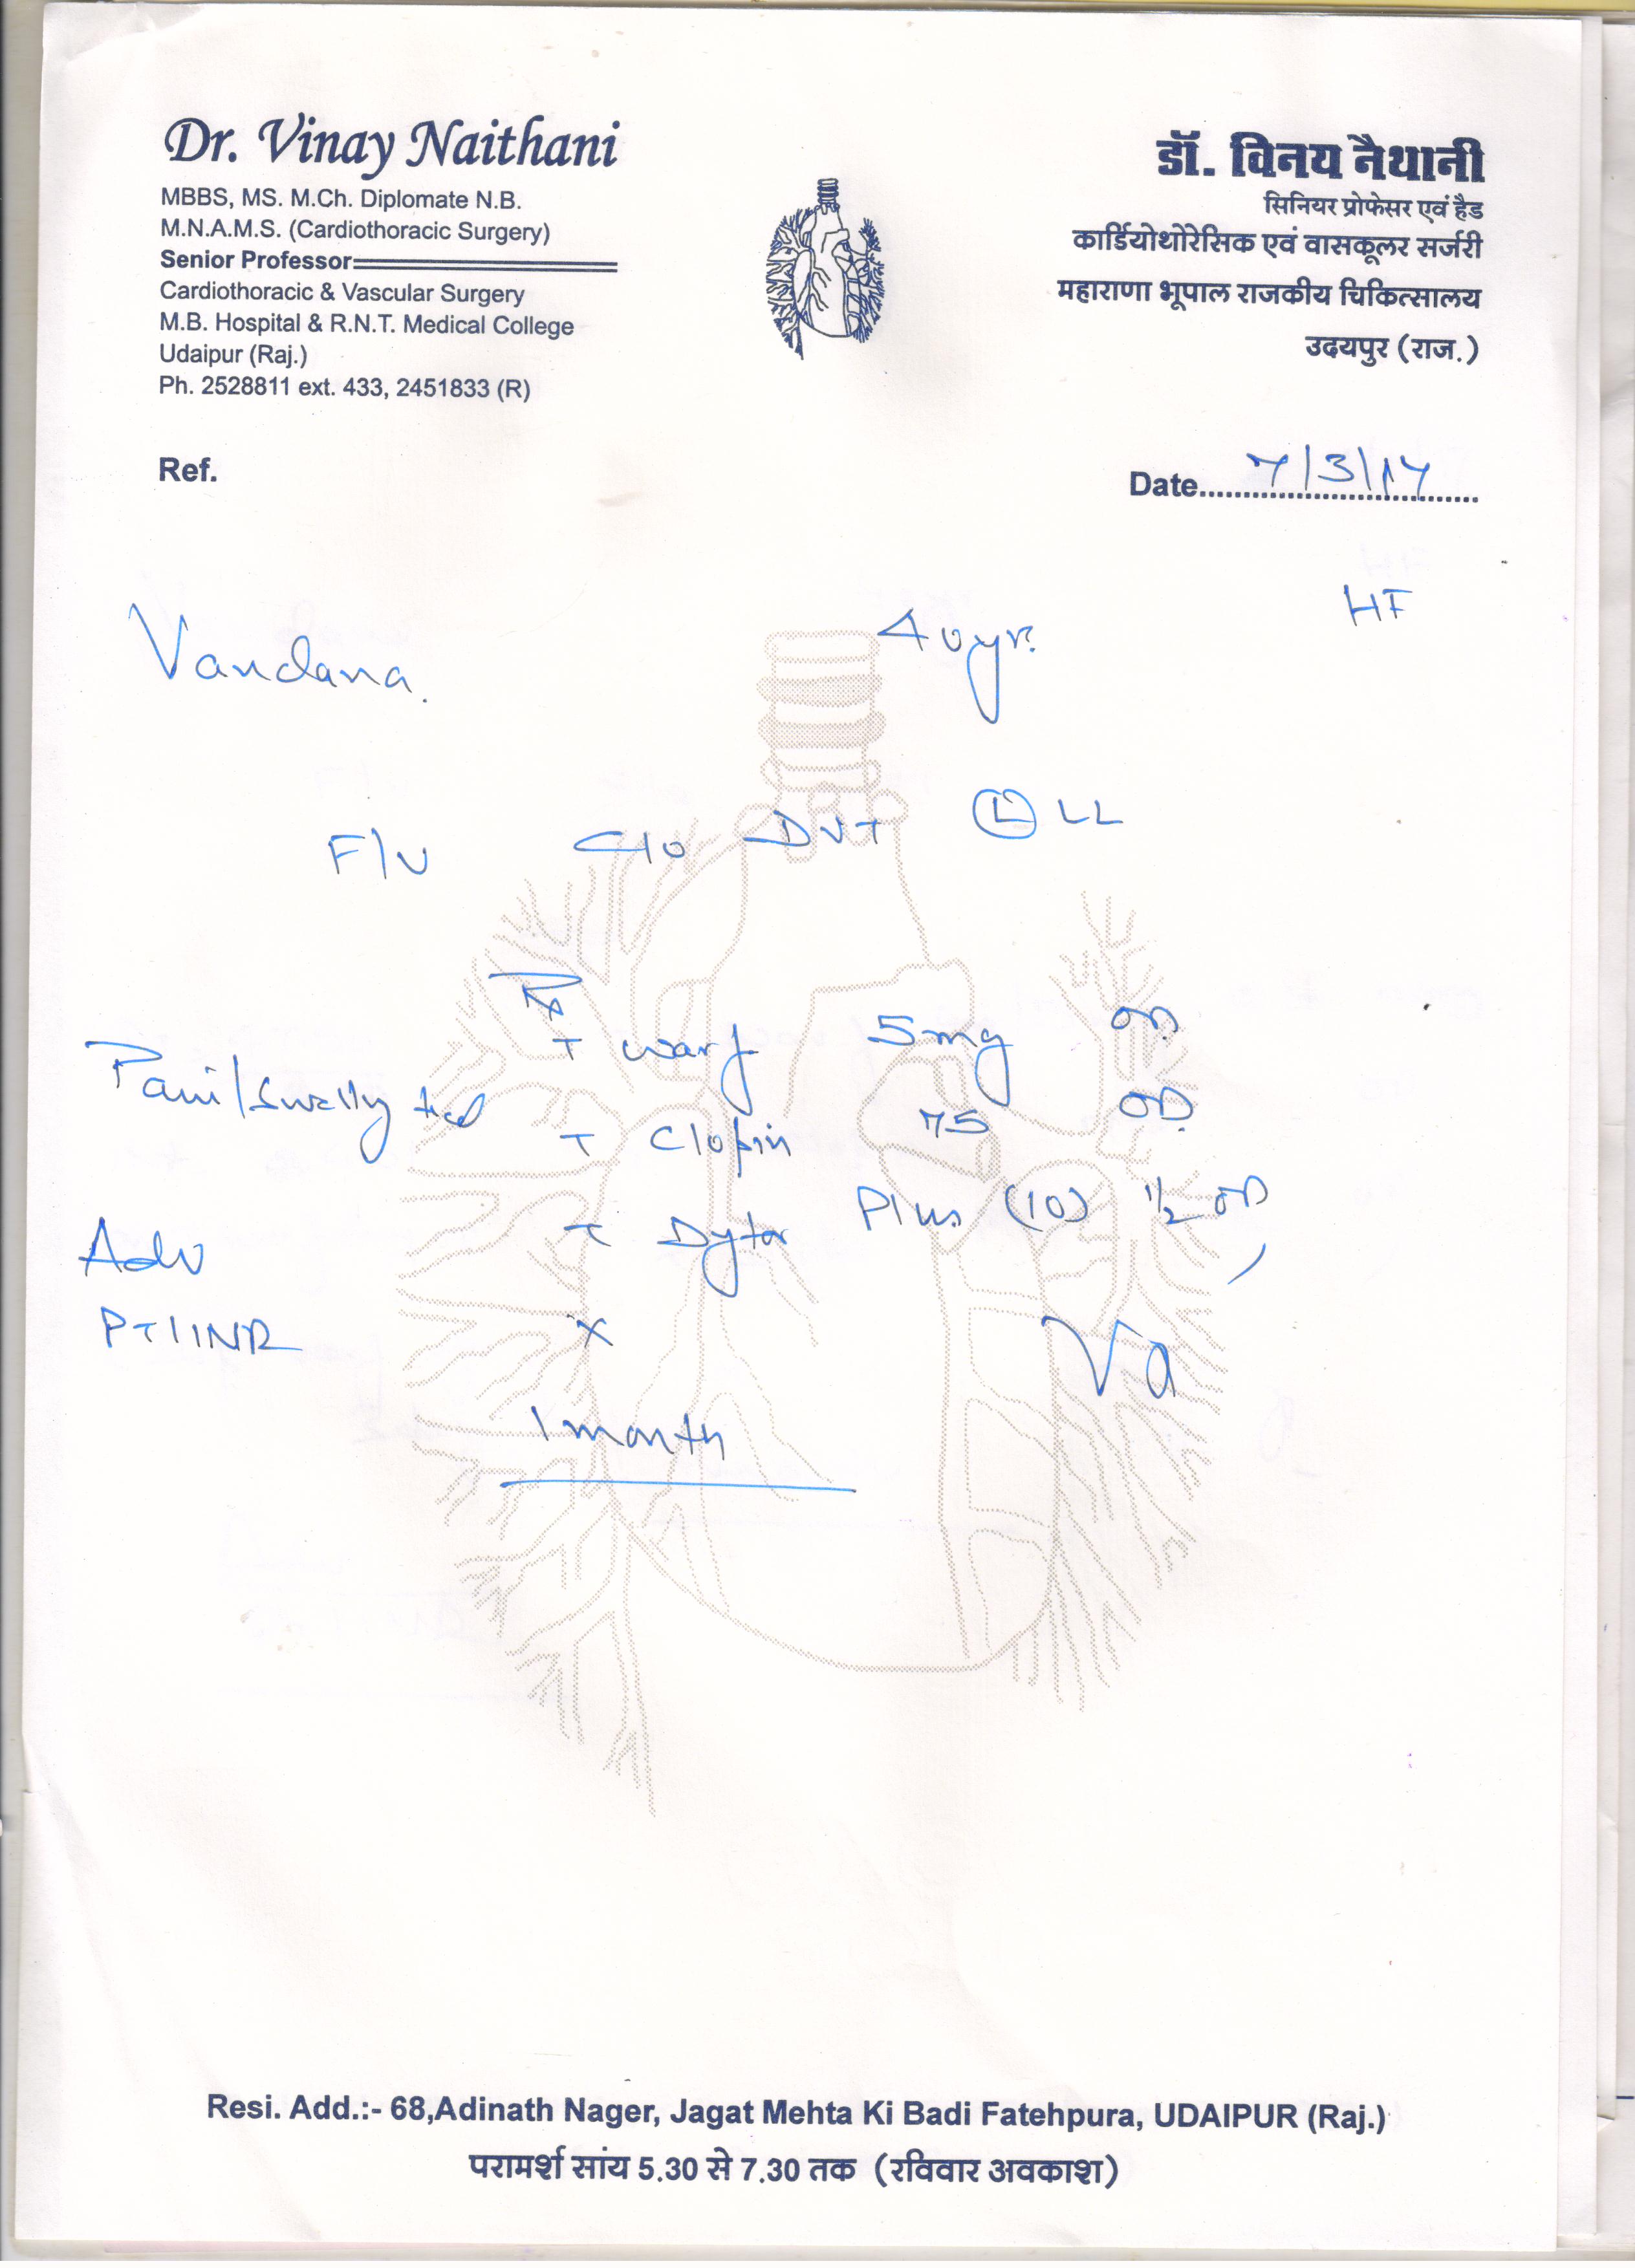 Dr. Vinay Naithani
MBBS, MS. M.Ch. Diplomate N.B.
M.N.A.M.S. (Cardiothoracic Surgery)
Senior Professor
Cardiothoracic & Vascular Surgery
M.B. Hospital & R.N.T. Medical College
Udaipur (Raj.)
Ph. 2528811 ext. 433, 2451833 (R)
डॉ. विनय नैथानी
सिनियर प्रोफेसर एवं हैड
कार्डियोथोरेसिक एवं वासकूलर सर्जरी
महाराणा भूपाल राजकीय चिकित्सालय
उदयपुर (राज.)
Ref.
Date 7/3/14
HF
Vandana. 40yr.
F/U C/o DVT (L) LL
Rx
T warf 5mg OD
Pain/Swelling
T Clopin 75 OD
T Dytor Plus (10) 1/2 OD
Adv
PT/INR x
1 month
Resi. Add.:- 68,Adinath Nager, Jagat Mehta Ki Badi Fatehpura, UDAIPUR (Raj.)
परामर्श सांय 5.30 से 7.30 तक (रविवार अवकाश)